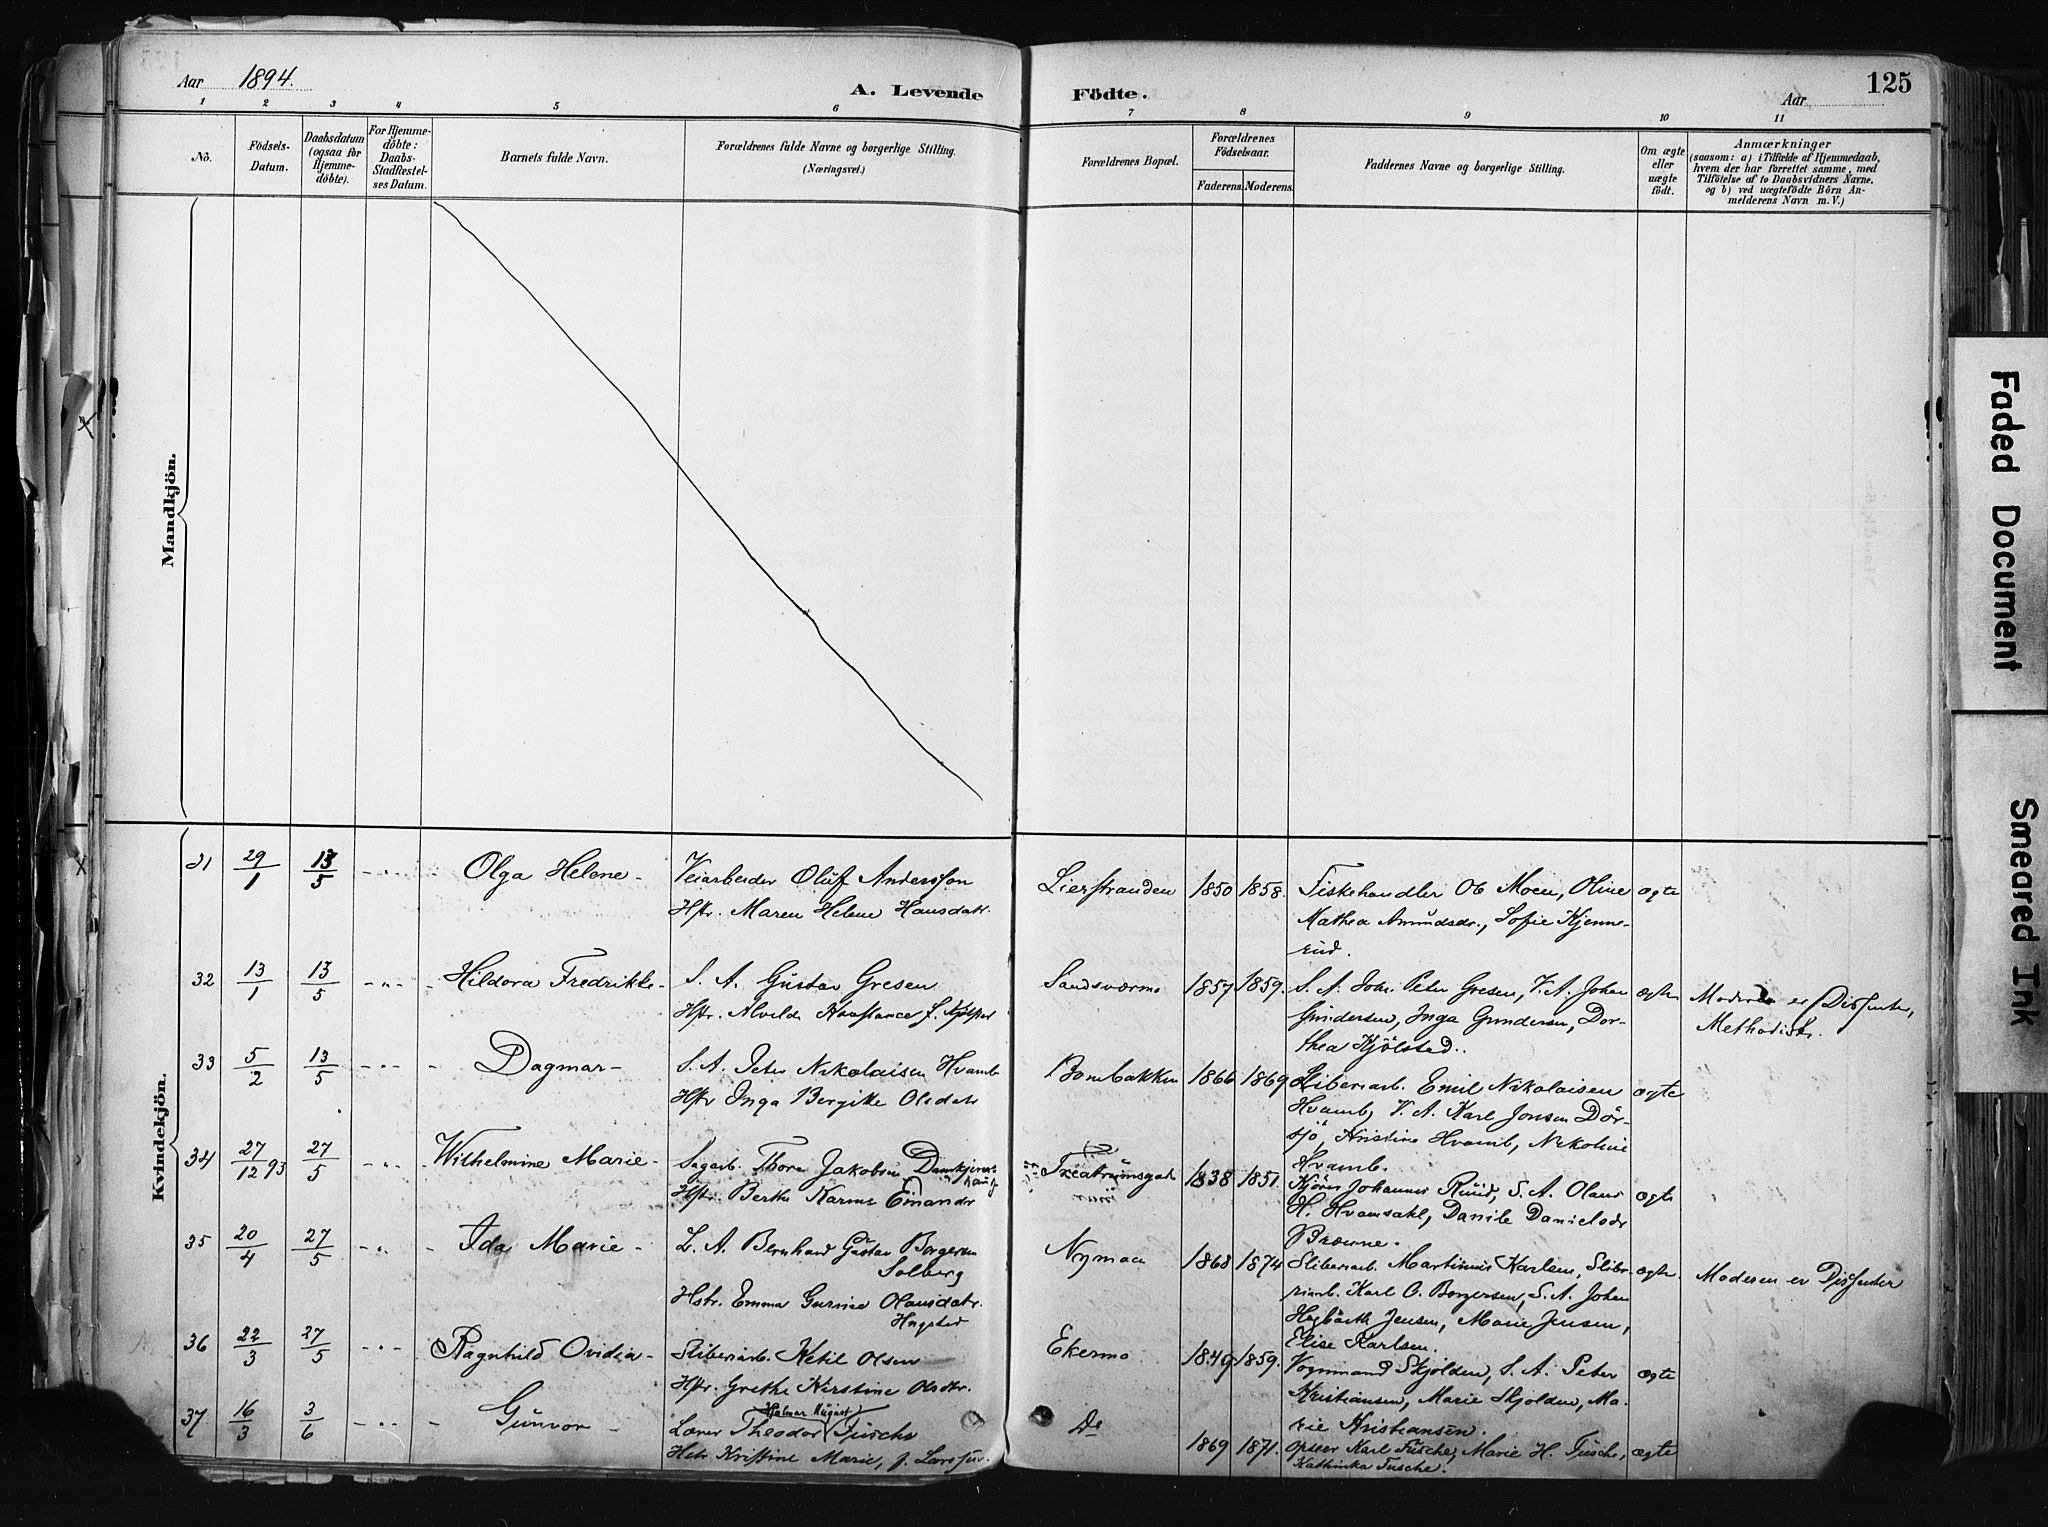 Aar 1894.
A. Levende Födte.
Aar
125
1 2 3 4 5 6 7 8 9 10 11
No.
Födsels-
Datum.
Daabsdatum
(ogsaa for
Hjemme-
döbte).
For Hjemme-
döbte:
Daabs-
Stadfæstel-
ses Datum.
Barnets fulde Navn.
Forældrenes fulde Navne og borgerlige Stilling.
(Næringsvei.)
Forældrenes Bopæl.
Forældrenes
Födselsaar.
Faderens. Moderens.
Faddernes Navne og borgerlige Stilling.
Om ægte
eller
uægte
födt.
Anmærkninger
(saasom: a) i Tilfælde af Hjemmedaab,
hvem der har forrettet samme, med
Tilföielse af to Daabsvidners Navne,
og b) ved uægtefödte Börn An-
melderens Navn m. V.)
Mandkjön.
Kvindekjön.
31 29/1 13/5 - " - Olga Helene - Veiarbeider Oluf Anderssøn Lierstranden 1850 1858. Fiskehandler Ob Moen, Oline ægte
Hstr. Maren Helene Hansdatr. Mathea Amundsdr., Sofie Kjenne-
rud.
32 13/1 13/5 - " - Hildora Fredrikke - S. A. Gustav Gresen Sandsværmo 1857 1859. S. A. Joh. Peter Gresen, V. A. Johan ægte Moderen er Dissenter,
Hstr. Alvilde Konstance f. Kjölstad Gundersen, Inga Gundersen, Dor- Methodist.
thea Kjölstad.
33 5/2 13/5 - " - Dagmar - S. A. Peter Nikolaisen Hvamb Bombakken 1866 1869 Sliberiarb. Emil Nikolaisen ægte
Hstr Inga Bergitte Olsdatr Hvamb, V. A. Karl Jonsen Dör-
sjö, Kristine Hvamb, Nikoline
Hvamb.
34 27/12 93 27/5 - " - Wilhelmine Marie - Sagarb. Thore Jakobsen 1838 1851. Kjörer Johannes Ruud, S. A. Olaus ægte
Hstr. Berthe Karine Einarsdr H. Hvamsahl, Danile Danielsdr
Bræune.
35 20/4 27/5 - " - Ida Marie - L. A. Bernhard Gustav Borgersen Nymoen 1868 1874 Sliberiarb. Martinius Karlsen, Slibe- ægte. Moderen er Dissenter
Solberg riarb. Karl O. Borgersen, S. A. Johan
Hstr. Emma Gurine Olausdatr. Hagbarth Jensen, Marie Jensen,
Elise Karlsen.
36 22/3 27/5 - " - Ragnhild Ovidia - Sliberiarb. Ketil Olsen Ekermo 1849 1859. Vognmand Skjolden, S. A. Peter ægte
Hstr. Grethe Kirstine Olsdtr. Kristiansen, Marie Skjolden, Ma-
rie Kristiansen.
37 16/3 3/6 - " - Gunvor - Lærer Theodor Hjalmar August Tüsche Do 1869 1871. Opseer Karl Tüsche, Marie H. Tusche, ægte
Hstr Kristine Marie, f. Larssen. Kathinka Tusche.
Faded Document
Smeared Ink